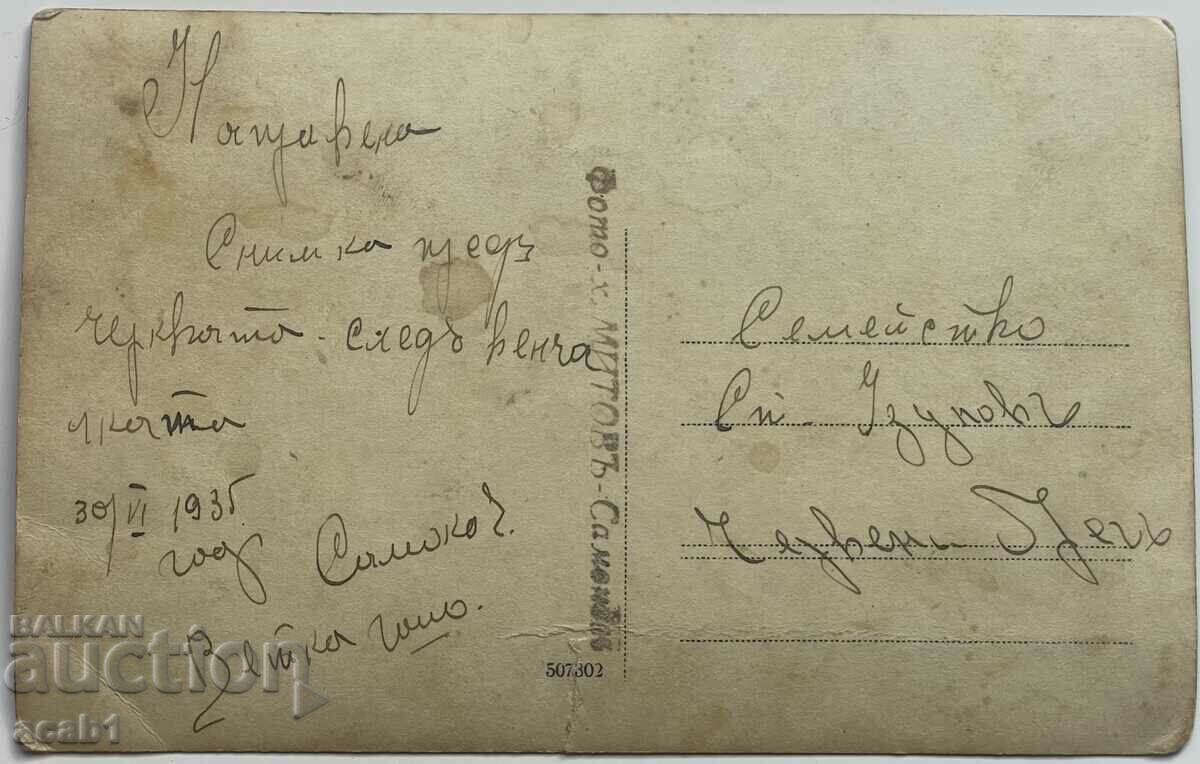 Направена
Снимка предъ
черквата - следъ венча
лката
30/VI 1935
год Самоков.
Фото-х. МИТОВЪ-Самоковъ
507302
Семейство
Сп. Узуновъ
Червени Брегъ
BALKAN
auction
acab1